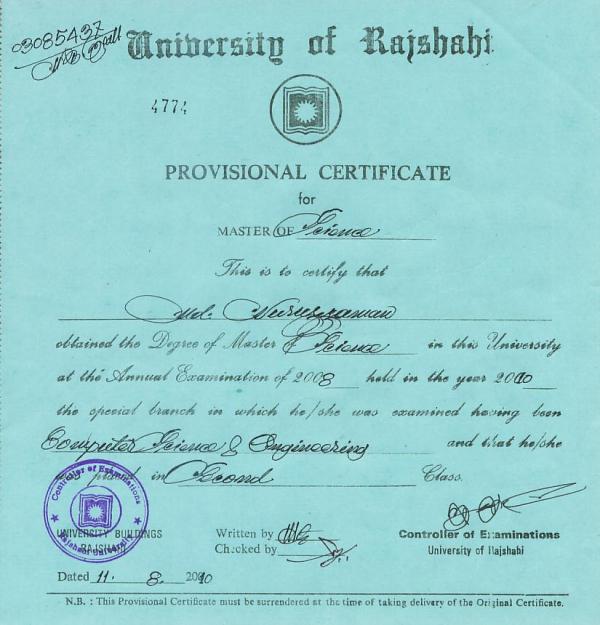 03085437
University of Rajshahi
4774
PROVISIONAL CERTIFICATE
for
MASTER OF Science
This is to certify that
Md. Nuruzzaman
obtained the Degree of Master of Science in this University
at the Annual Examination of 2008 held in the year 2010
the special branch in which he/she was examined having been
Computer Science & Engineering and that he/she
was placed in Second Class.
Controller of Examinations
Rajshahi University
UNIVERSITY BUILDINGS
RAJSHAHI
Written by
Checked by
Controller of Examinations
University of Rajshahi
Dated 11. 8. 2010
N.B. : This Provisional Certificate must be surrendered at the time of taking delivery of the Original Certificate.